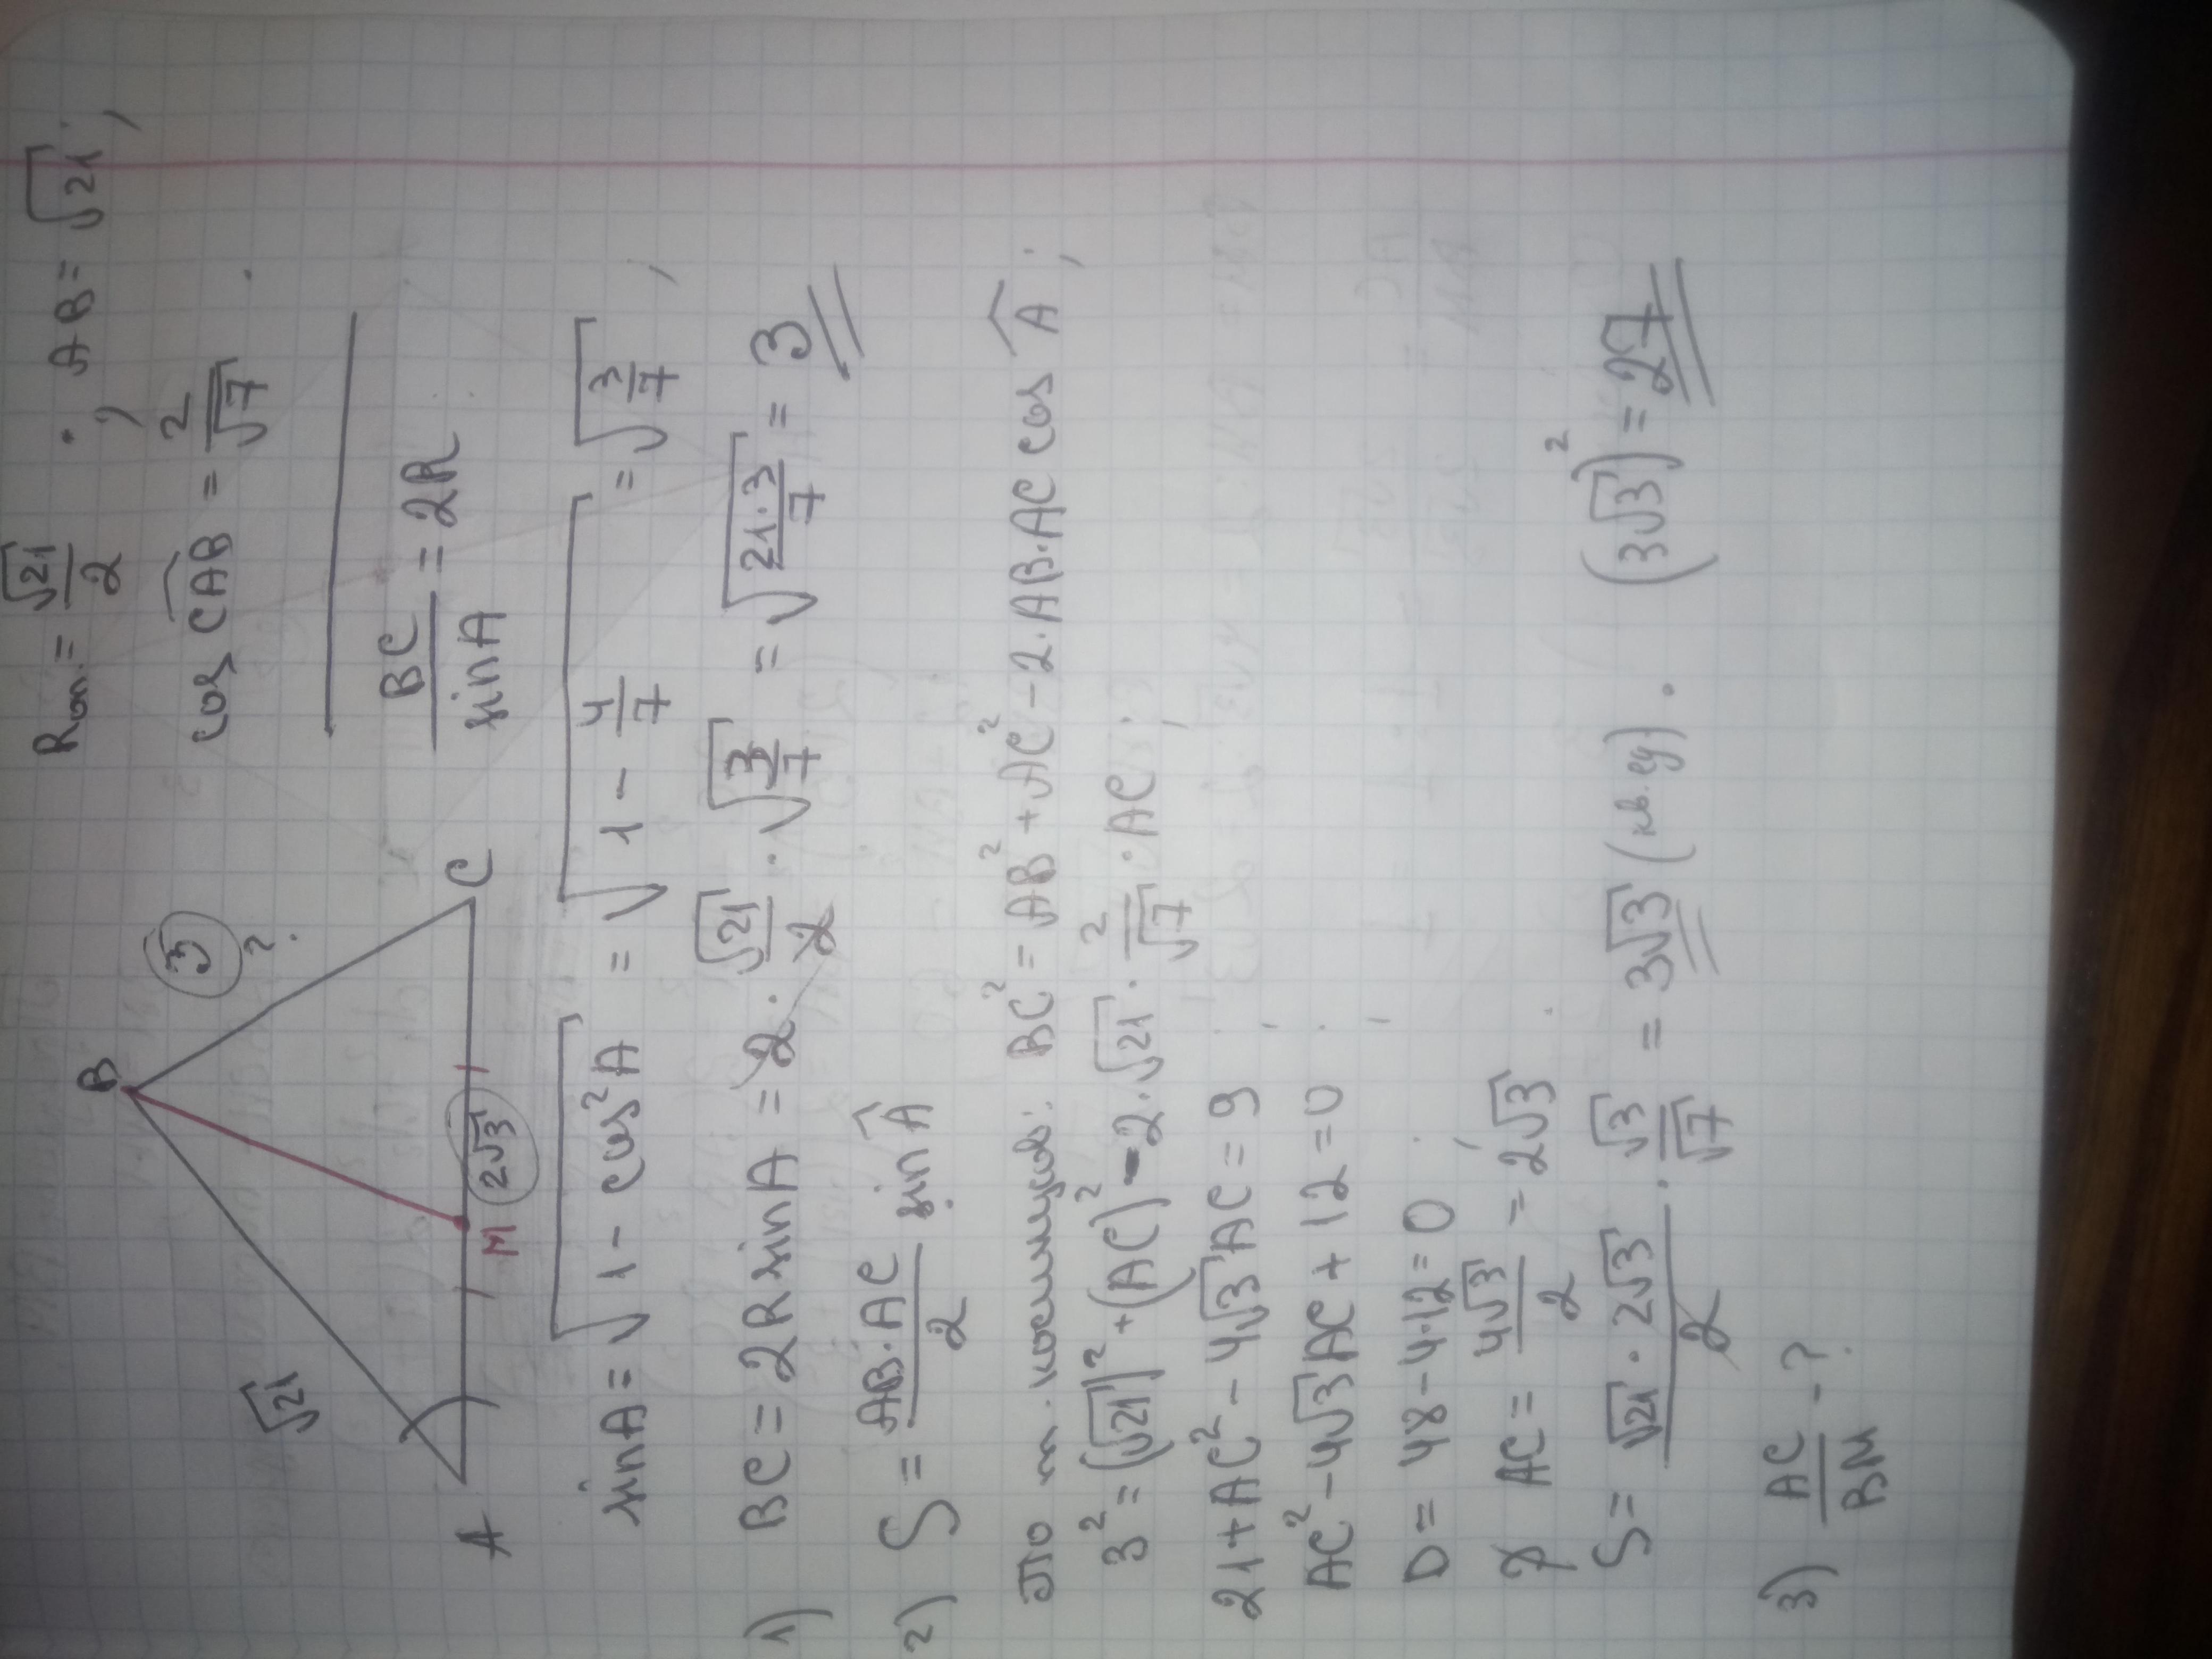 B
√21
3
?
A
M
2√3
C
Rоп. = √21/2 ; AB = √21 ;
cos CAB = 2/√7 .
BC/sinA = 2R
sinA = √(1 - cos²A) = √(1 - 4/7) = √(3/7) ;
1) BC = 2R sinA = 2 · √21/2 · √(3/7) = √(21·3/7) = 3
2) S = AB·AC/2 sin A
По т. косинусов: BC² = AB² + AC² - 2·AB·AC cos A ;
3² = (√21)² + (AC)² - 2·√21 · 2/√7 · AC ;
21 + AC² - 4√3 AC = 9 ;
AC² - 4√3 AC + 12 = 0 ;
D = 48 - 4·12 = 0 ;
AC = 4√3/2 = 2√3 .
S = √21 · 2√3/2 · √3/√7 = 3√3 (кв. ед) . (3√3)² = 27
3) AC/BM - ?